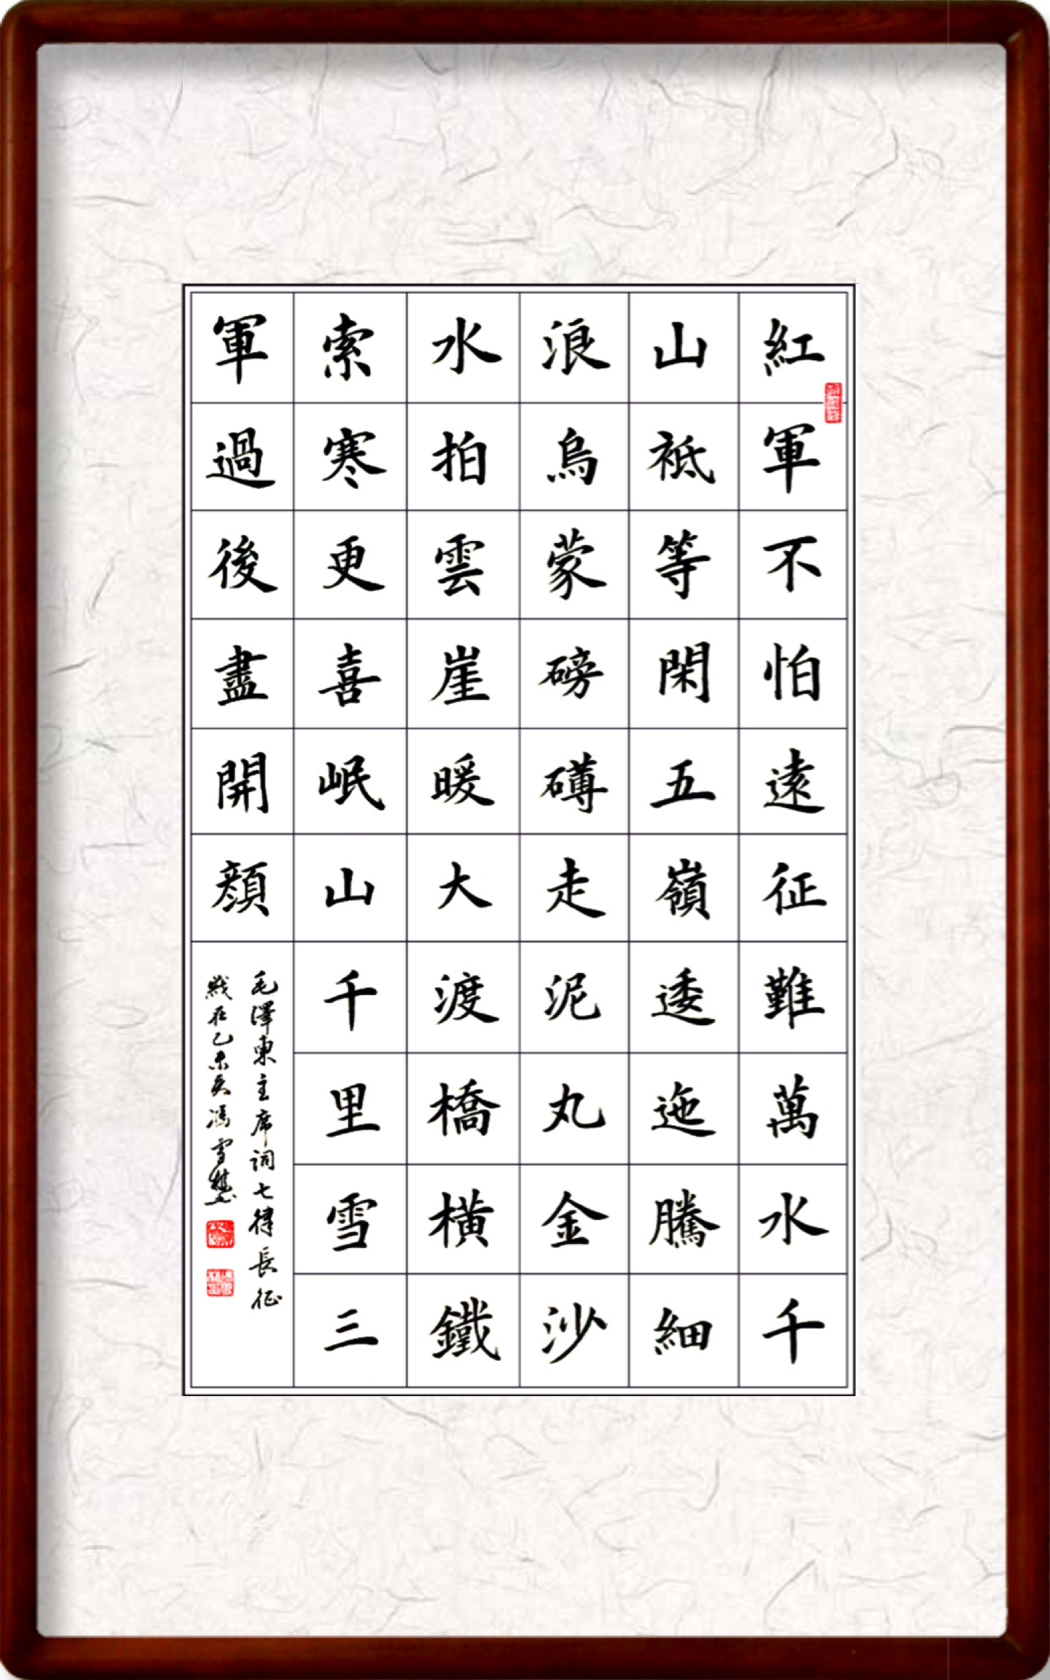 紅軍不怕遠征難萬水千
山祗等閑五嶺逶迤騰細
浪烏蒙磅礴走泥丸金沙
水拍雲崖暖大渡橋橫鐵
索寒更喜岷山千里雪三
軍過後盡開顏
毛澤東主席詞七律長征
歲在乙未夏馮雪